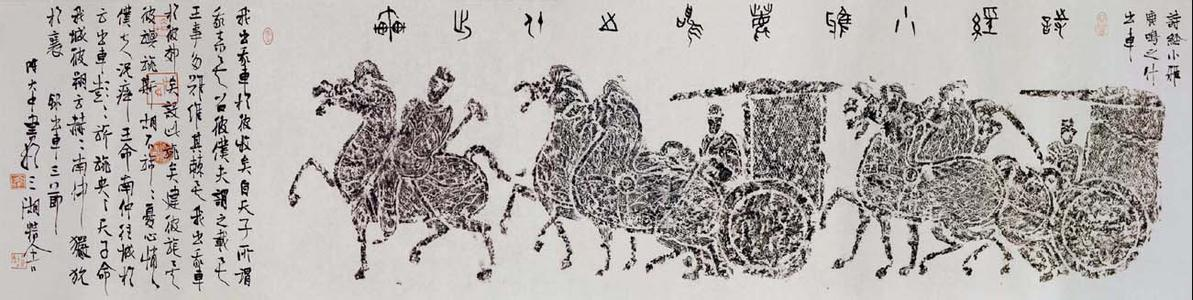 詩經小雅
鹿鳴之什
出車
詩經小雅鹿鳴之什出車
我出我車於彼牧矣自天子所謂
我來矣召彼僕夫謂之載矣
王事多難維其棘矣我出我車
於彼郊矣設此旐矣建彼旄矣
彼旟旐斯胡不旆〻憂心悄〻
僕夫況瘁王命南仲往城於
方出車彭〻旂旐央〻天子命
我城彼朔方赫〻南仲玁狁
於襄 錄出車三節
大中書於三湖